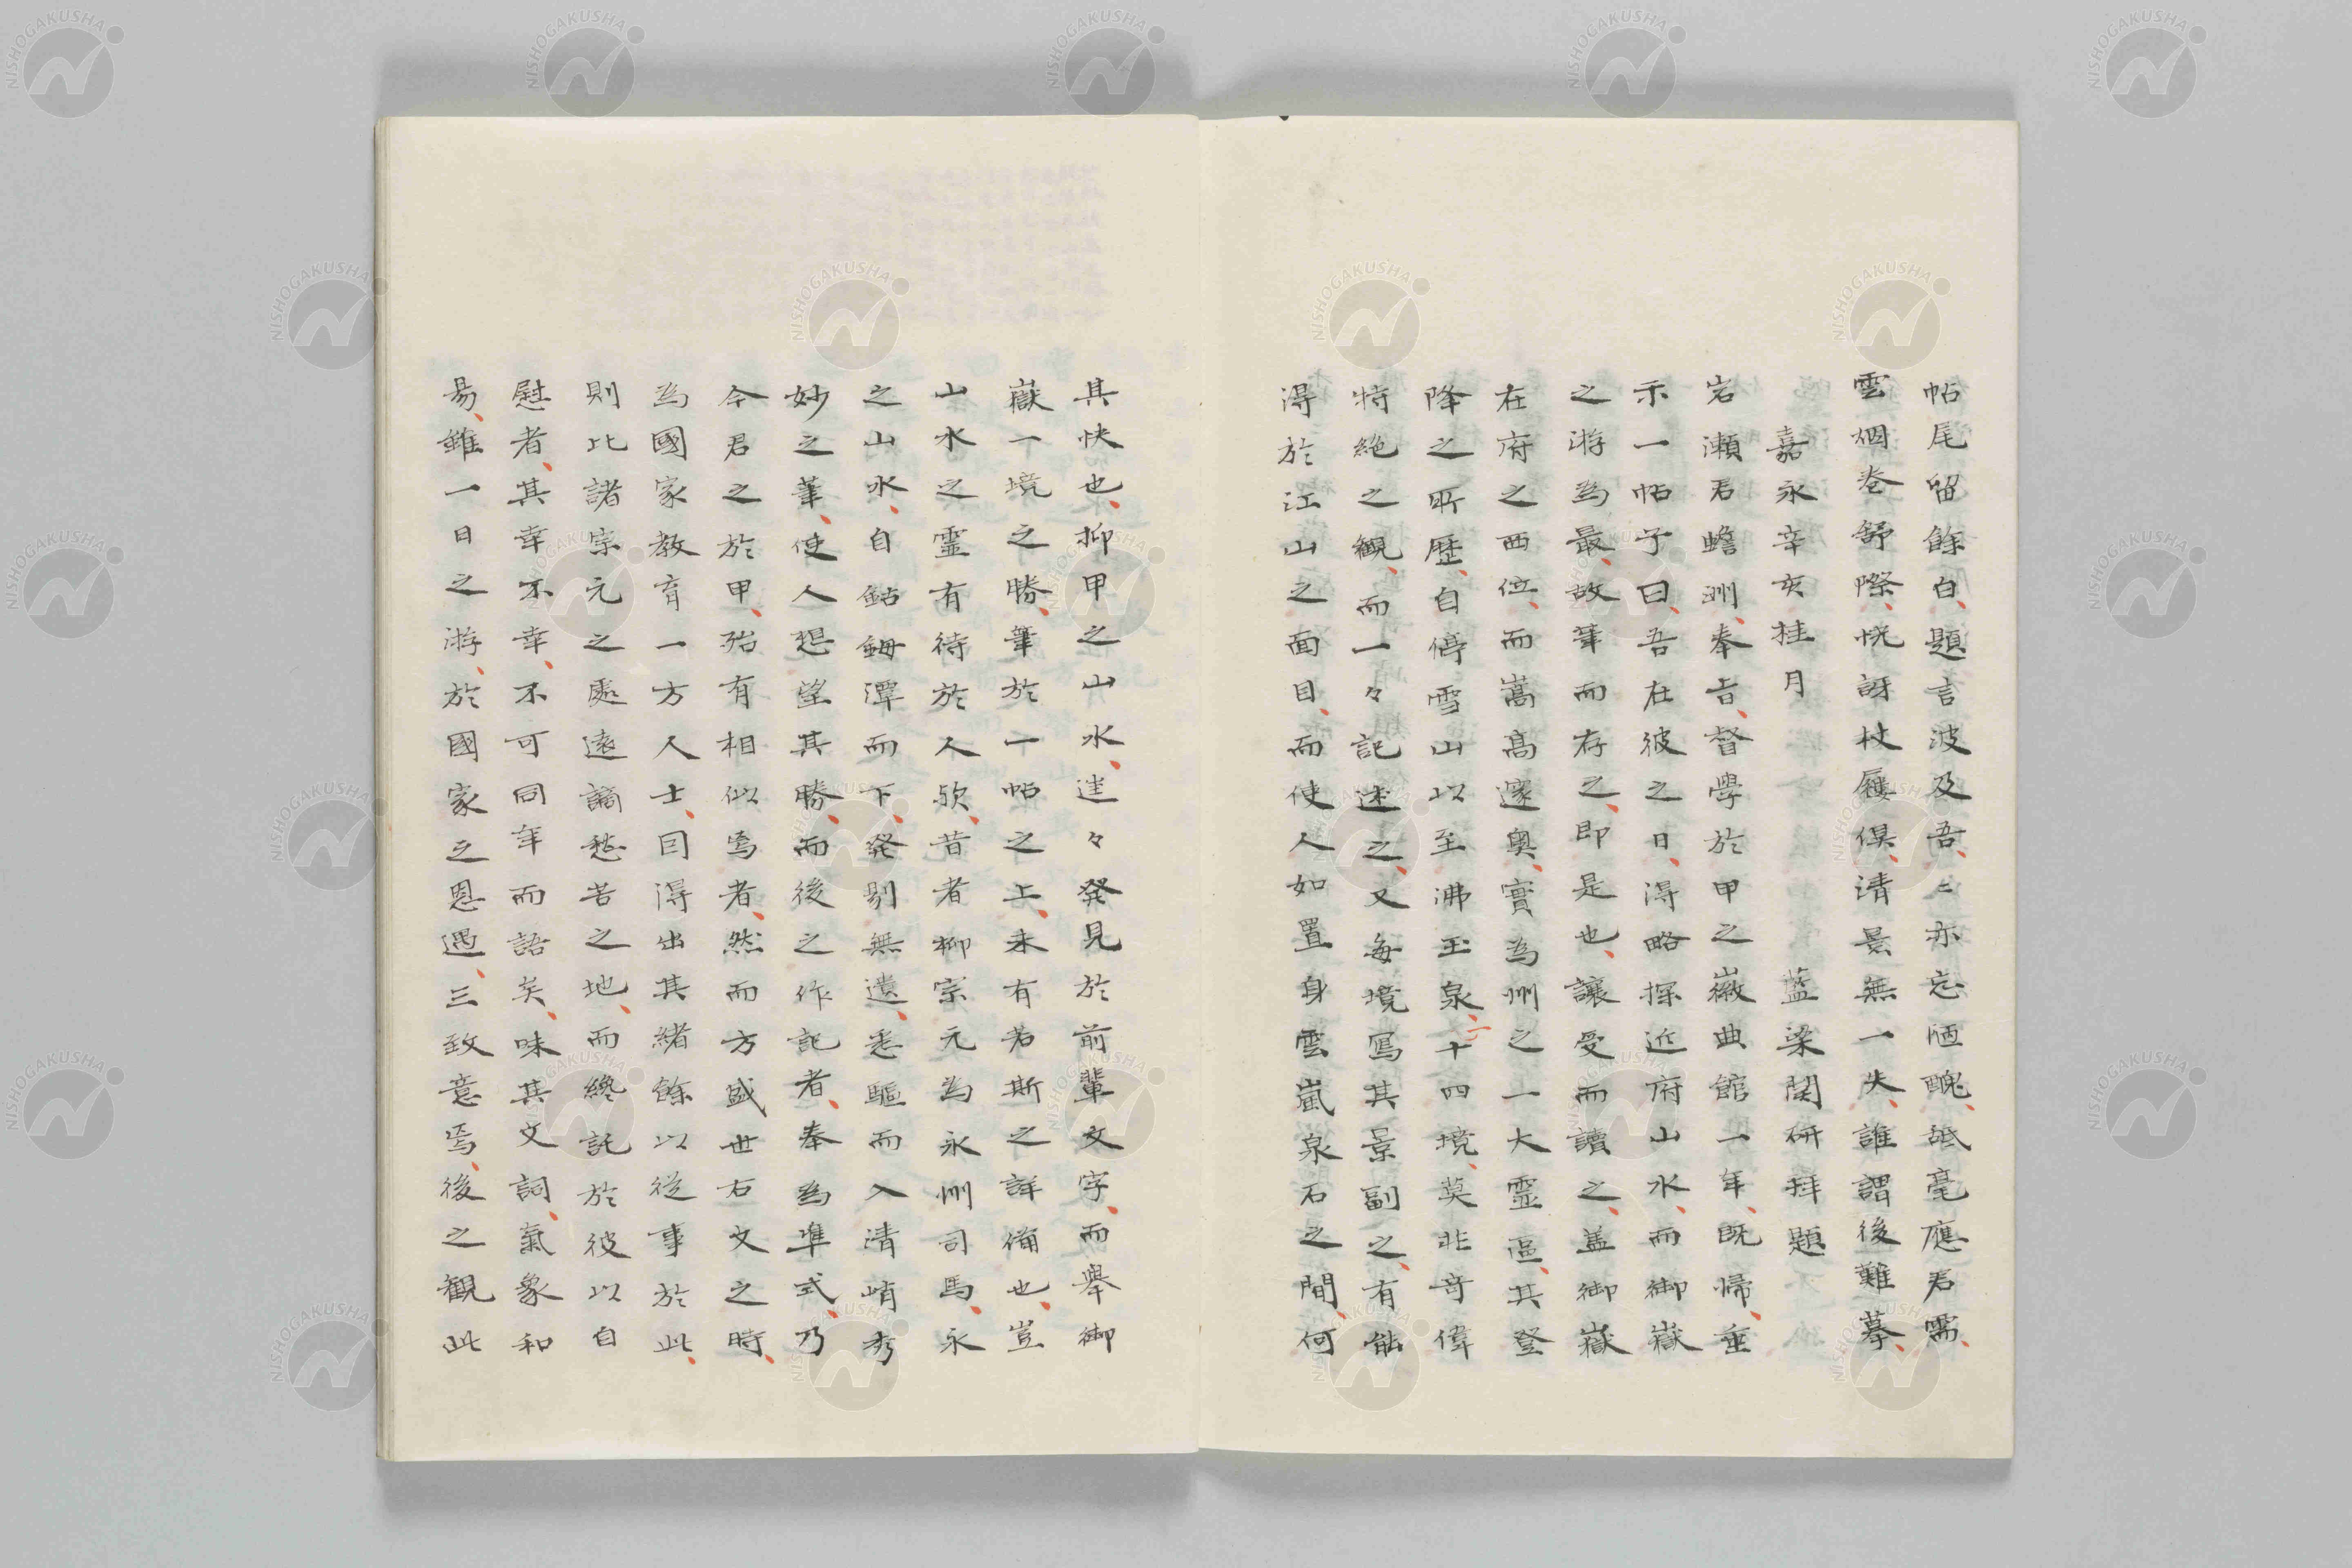 帖尾留餘白、題言波及吾、〻亦忘陋醜、舐毫應君需、
雲烟巻舒際、恍訝杖屨俱、清景無一失、誰謂後難摹、
嘉永辛亥桂月　藍梁閑研拜題
岩瀬君蟾洲、奉旨、督學於甲之徽典館一年、既帰、垂
示一帖子曰、吾在彼之日、得略探近府山水、而御嶽
之游為最、故筆而存之、即是也、讓受而讀之、蓋御嶽
在府之西位、而嵩高邃奥、實為州之一大霊區、其登
降之所歴、自停雪山以至沸玉泉二十四境、莫非奇偉
特絶之観、而一々記述之、又毎境冩其景副之、有能
得於江山之面目、而使人如置身雲嵐泉石之間、何
其快也、抑甲之山水、往々発見於前輩文字、而舉御
嶽一境之勝、筆於一帖之上、未有若斯之詳備也、豈
山水之霊有待於人歟、昔者柳宗元為永州司馬、永
之山水、自鈷鉧潭而下、発剔無遺、悉驅而入清峭秀
妙之筆、使人想望其勝、而後之作記者、奉為準式、乃
今君之於甲、殆有相似焉者、然而方盛世右文之時、
為國家教育一方人士、因得出其緒餘以従事於此、
則比諸宗元之處遠謫愁苦之地、而纔託於彼以自
慰者、其幸不幸、不可同年而語矣、味其文詞、氣象和
易、雖一日之游、於國家之恩遇、三致意焉、後之観此